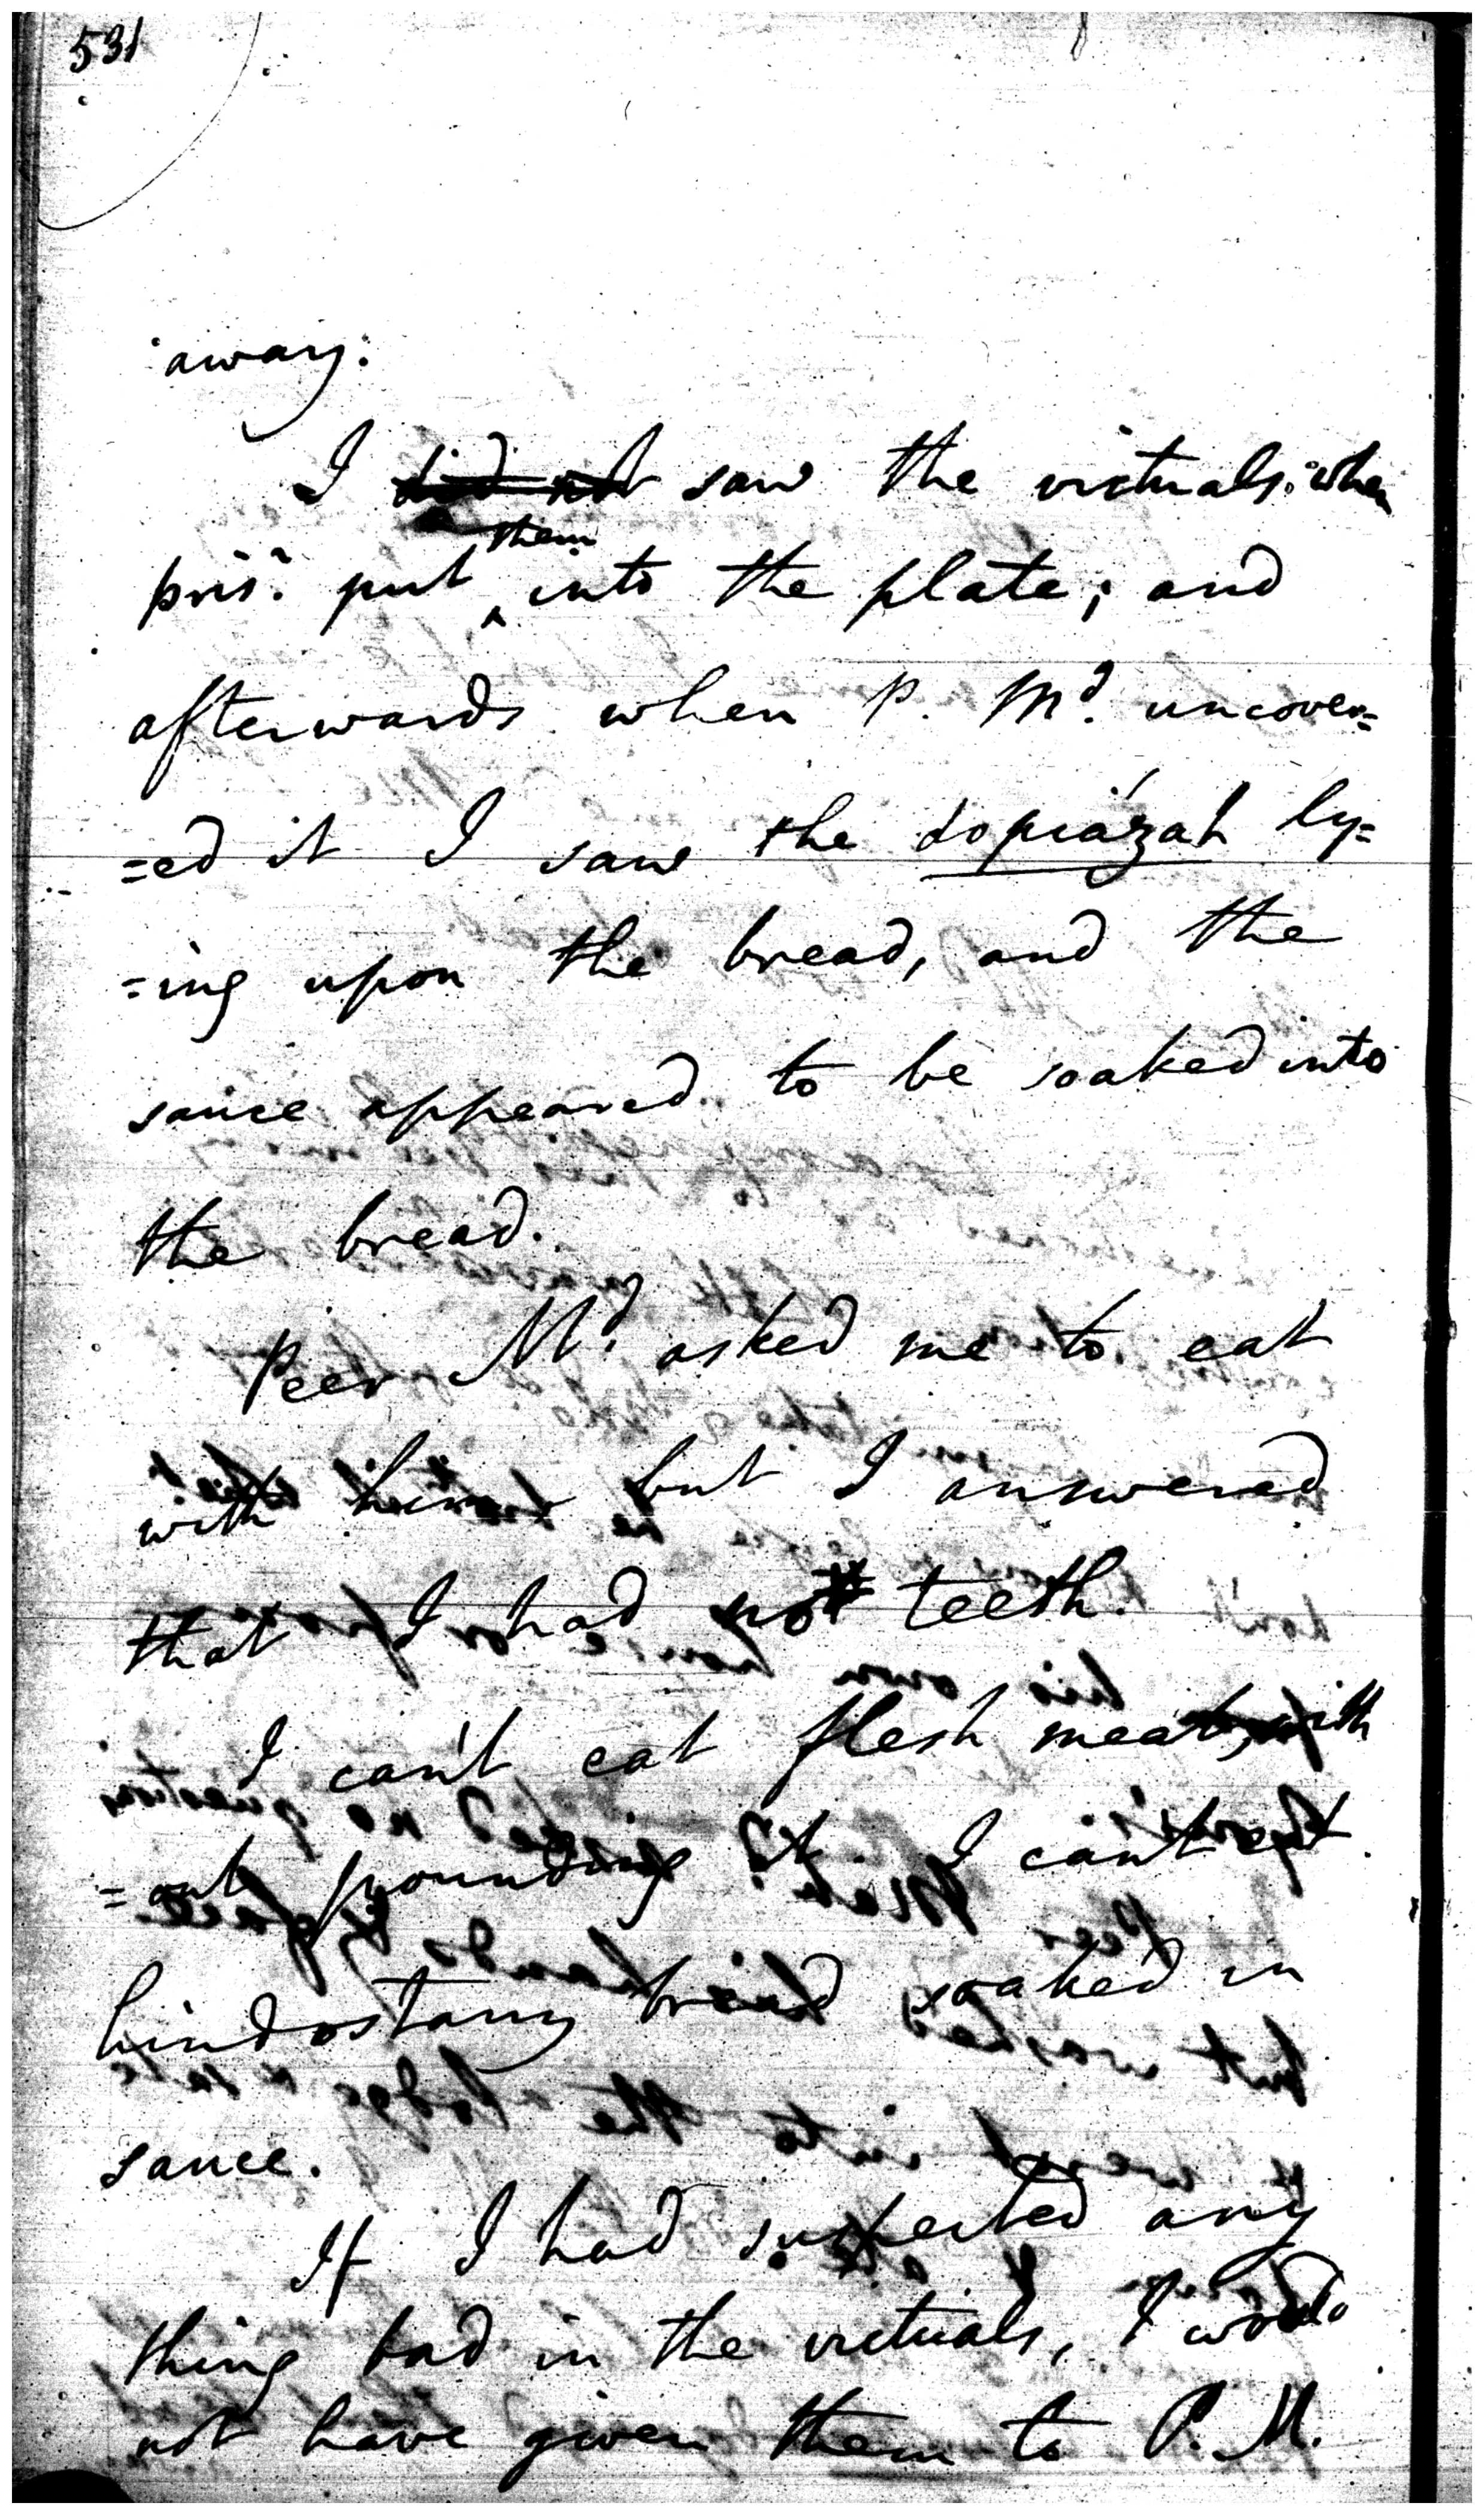 531
away.
I did not saw the victuals when
them
pris.r put ^ into the plate; and
afterwards when P. Md. uncover=
=ed it I saw the dopiázah ly=
=ing upon the bread, and the
sauce appeared to be soaked into
the bread.
Peer Md. asked me to eat
with him but I answered
that I had not teeth.
I can't eat flesh meat, with
=out pounding it. I can't eat
hindostany bread soaked in
sauce.
If I had suspected any
thing bad in the victuals, I would
not have given them to P. M.